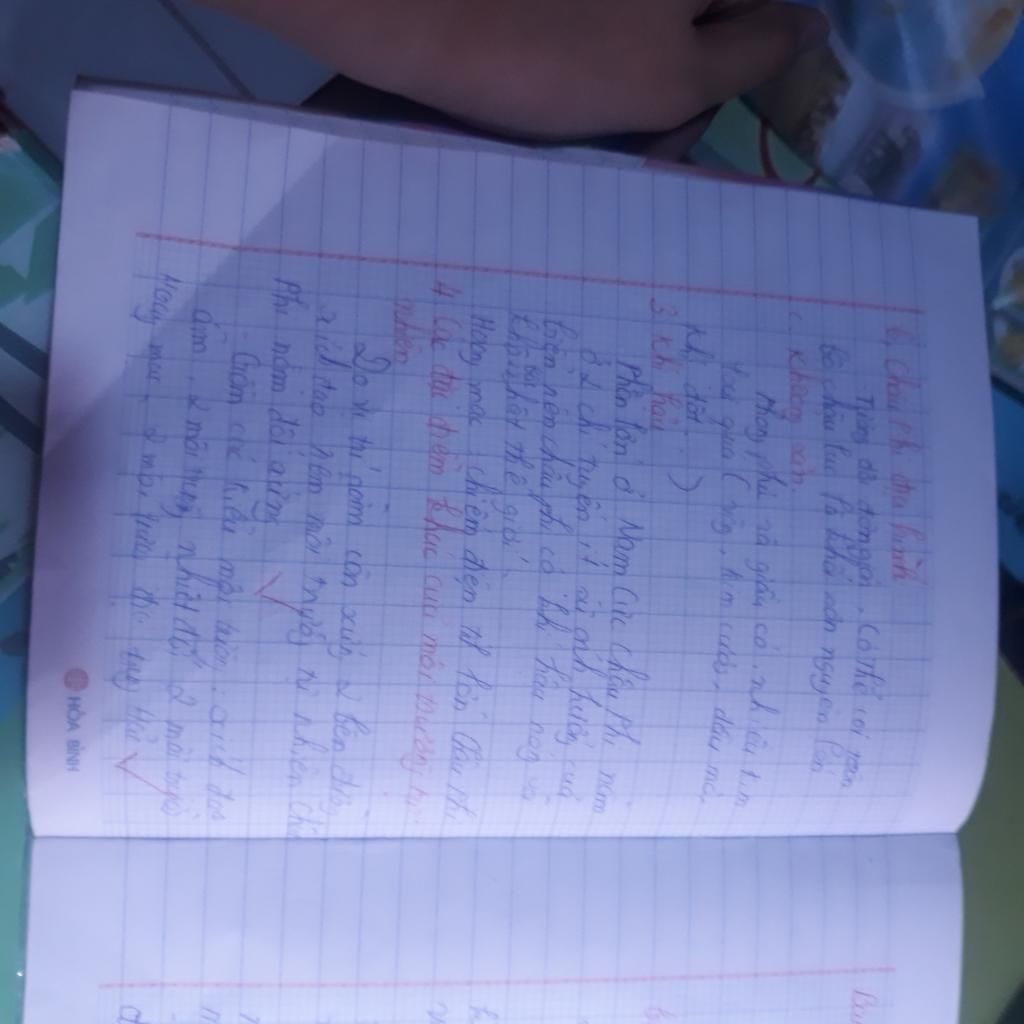 b. Châu Phi địa hình
Tương đối đơn giản. Có thể coi toàn
bộ châu lục là khối cao nguyên lớn
c. khoáng sản.
Phong phú và giàu có, nhiều kim
loại quý (vàng, kim cương, dầu mỏ,
khí đốt...)
3 khí hậu
Phần lớn ở Nam Cực châu Phi nằm
ở 2 chí tuyến, ít ảnh hưởng của
biển nên châu phi có khí hậu nóng và
khô bậc nhất thế giới
Hoang mạc chiếm diện tích lớn châu Phi
4 Các đặc điểm khác của môi trường tự
nhiên
Do vị trí nằm cân xứng 2 bên đường
xích đạo nên môi trường tự nhiên Châu
Phi nằm đối xứng
- Gồm các kiểu môi trường: xích đạo
ẩm, 2 môi trường nhiệt đới, 2 môi trường
Hoang mạc, 2 môi trường địa trung hải
HÒA BÌNH